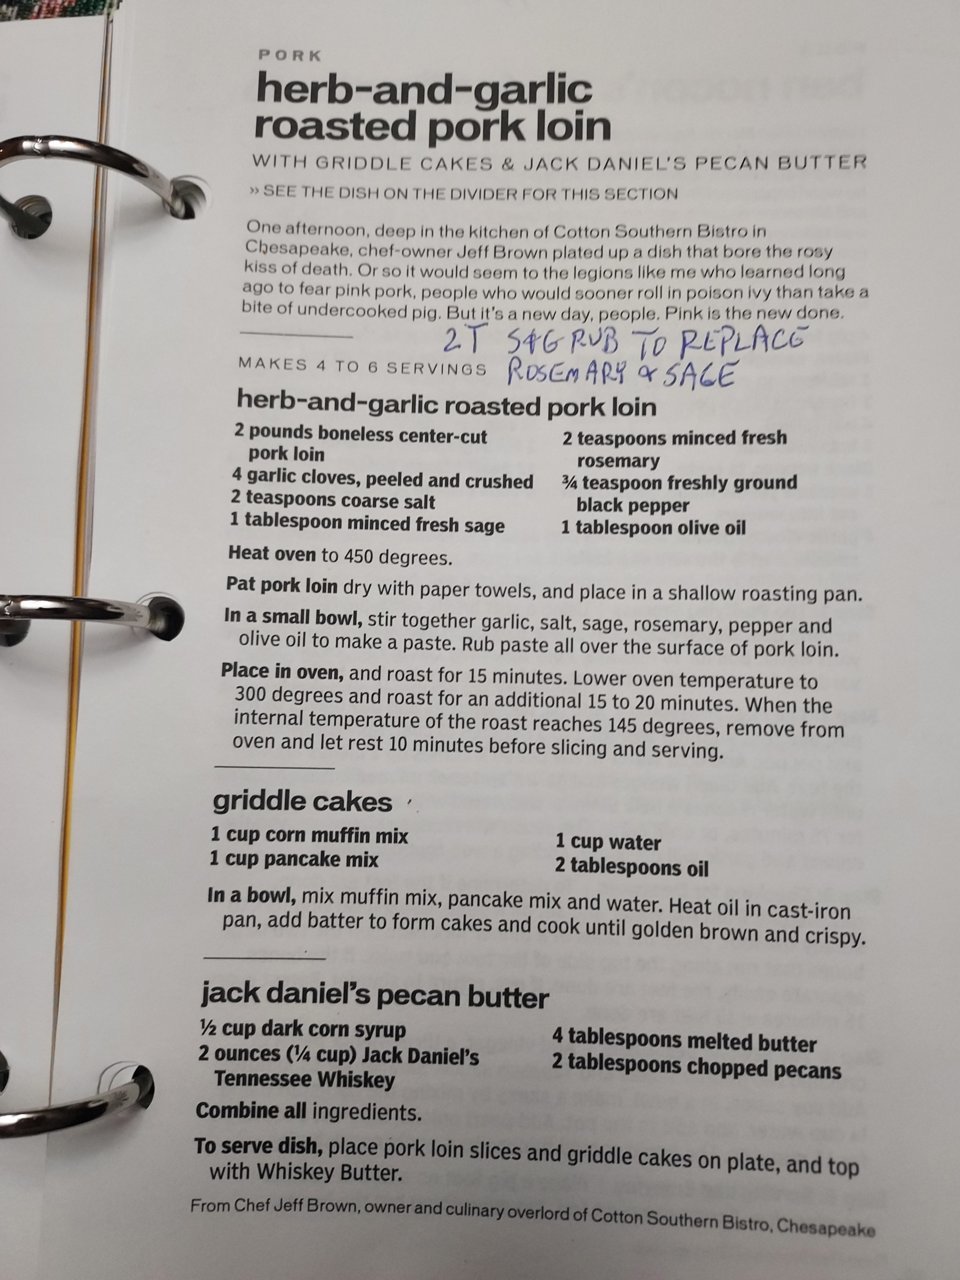 PORK
herb-and-garlic
roasted pork loin
WITH GRIDDLE CAKES & JACK DANIEL'S PECAN BUTTER
›› SEE THE DISH ON THE DIVIDER FOR THIS SECTION
One afternoon, deep in the kitchen of Cotton Southern Bistro in
Chesapeake, chef-owner Jeff Brown plated up a dish that bore the rosy
kiss of death. Or so it would seem to the legions like me who learned long
ago to fear pink pork, people who would sooner roll in poison ivy than take a
bite of undercooked pig. But it's a new day, people. Pink is the new done.
2T S&G RUB TO REPLACE
ROSEMARY & SAGE
MAKES 4 TO 6 SERVINGS
herb-and-garlic roasted pork loin
2 pounds boneless center-cut
pork loin
4 garlic cloves, peeled and crushed
2 teaspoons coarse salt
1 tablespoon minced fresh sage
2 teaspoons minced fresh
rosemary
¾ teaspoon freshly ground
black pepper
1 tablespoon olive oil
Heat oven to 450 degrees.
Pat pork loin dry with paper towels, and place in a shallow roasting pan.
In a small bowl, stir together garlic, salt, sage, rosemary, pepper and
olive oil to make a paste. Rub paste all over the surface of pork loin.
Place in oven, and roast for 15 minutes. Lower oven temperature to
300 degrees and roast for an additional 15 to 20 minutes. When the
internal temperature of the roast reaches 145 degrees, remove from
oven and let rest 10 minutes before slicing and serving.
griddle cakes
1 cup corn muffin mix
1 cup pancake mix
1 cup water
2 tablespoons oil
In a bowl, mix muffin mix, pancake mix and water. Heat oil in cast-iron
pan, add batter to form cakes and cook until golden brown and crispy.
jack daniel's pecan butter
½ cup dark corn syrup
2 ounces (¼ cup) Jack Daniel's
Tennessee Whiskey
4 tablespoons melted butter
2 tablespoons chopped pecans
Combine all ingredients.
To serve dish, place pork loin slices and griddle cakes on plate, and top
with Whiskey Butter.
From Chef Jeff Brown, owner and culinary overlord of Cotton Southern Bistro, Chesapeake